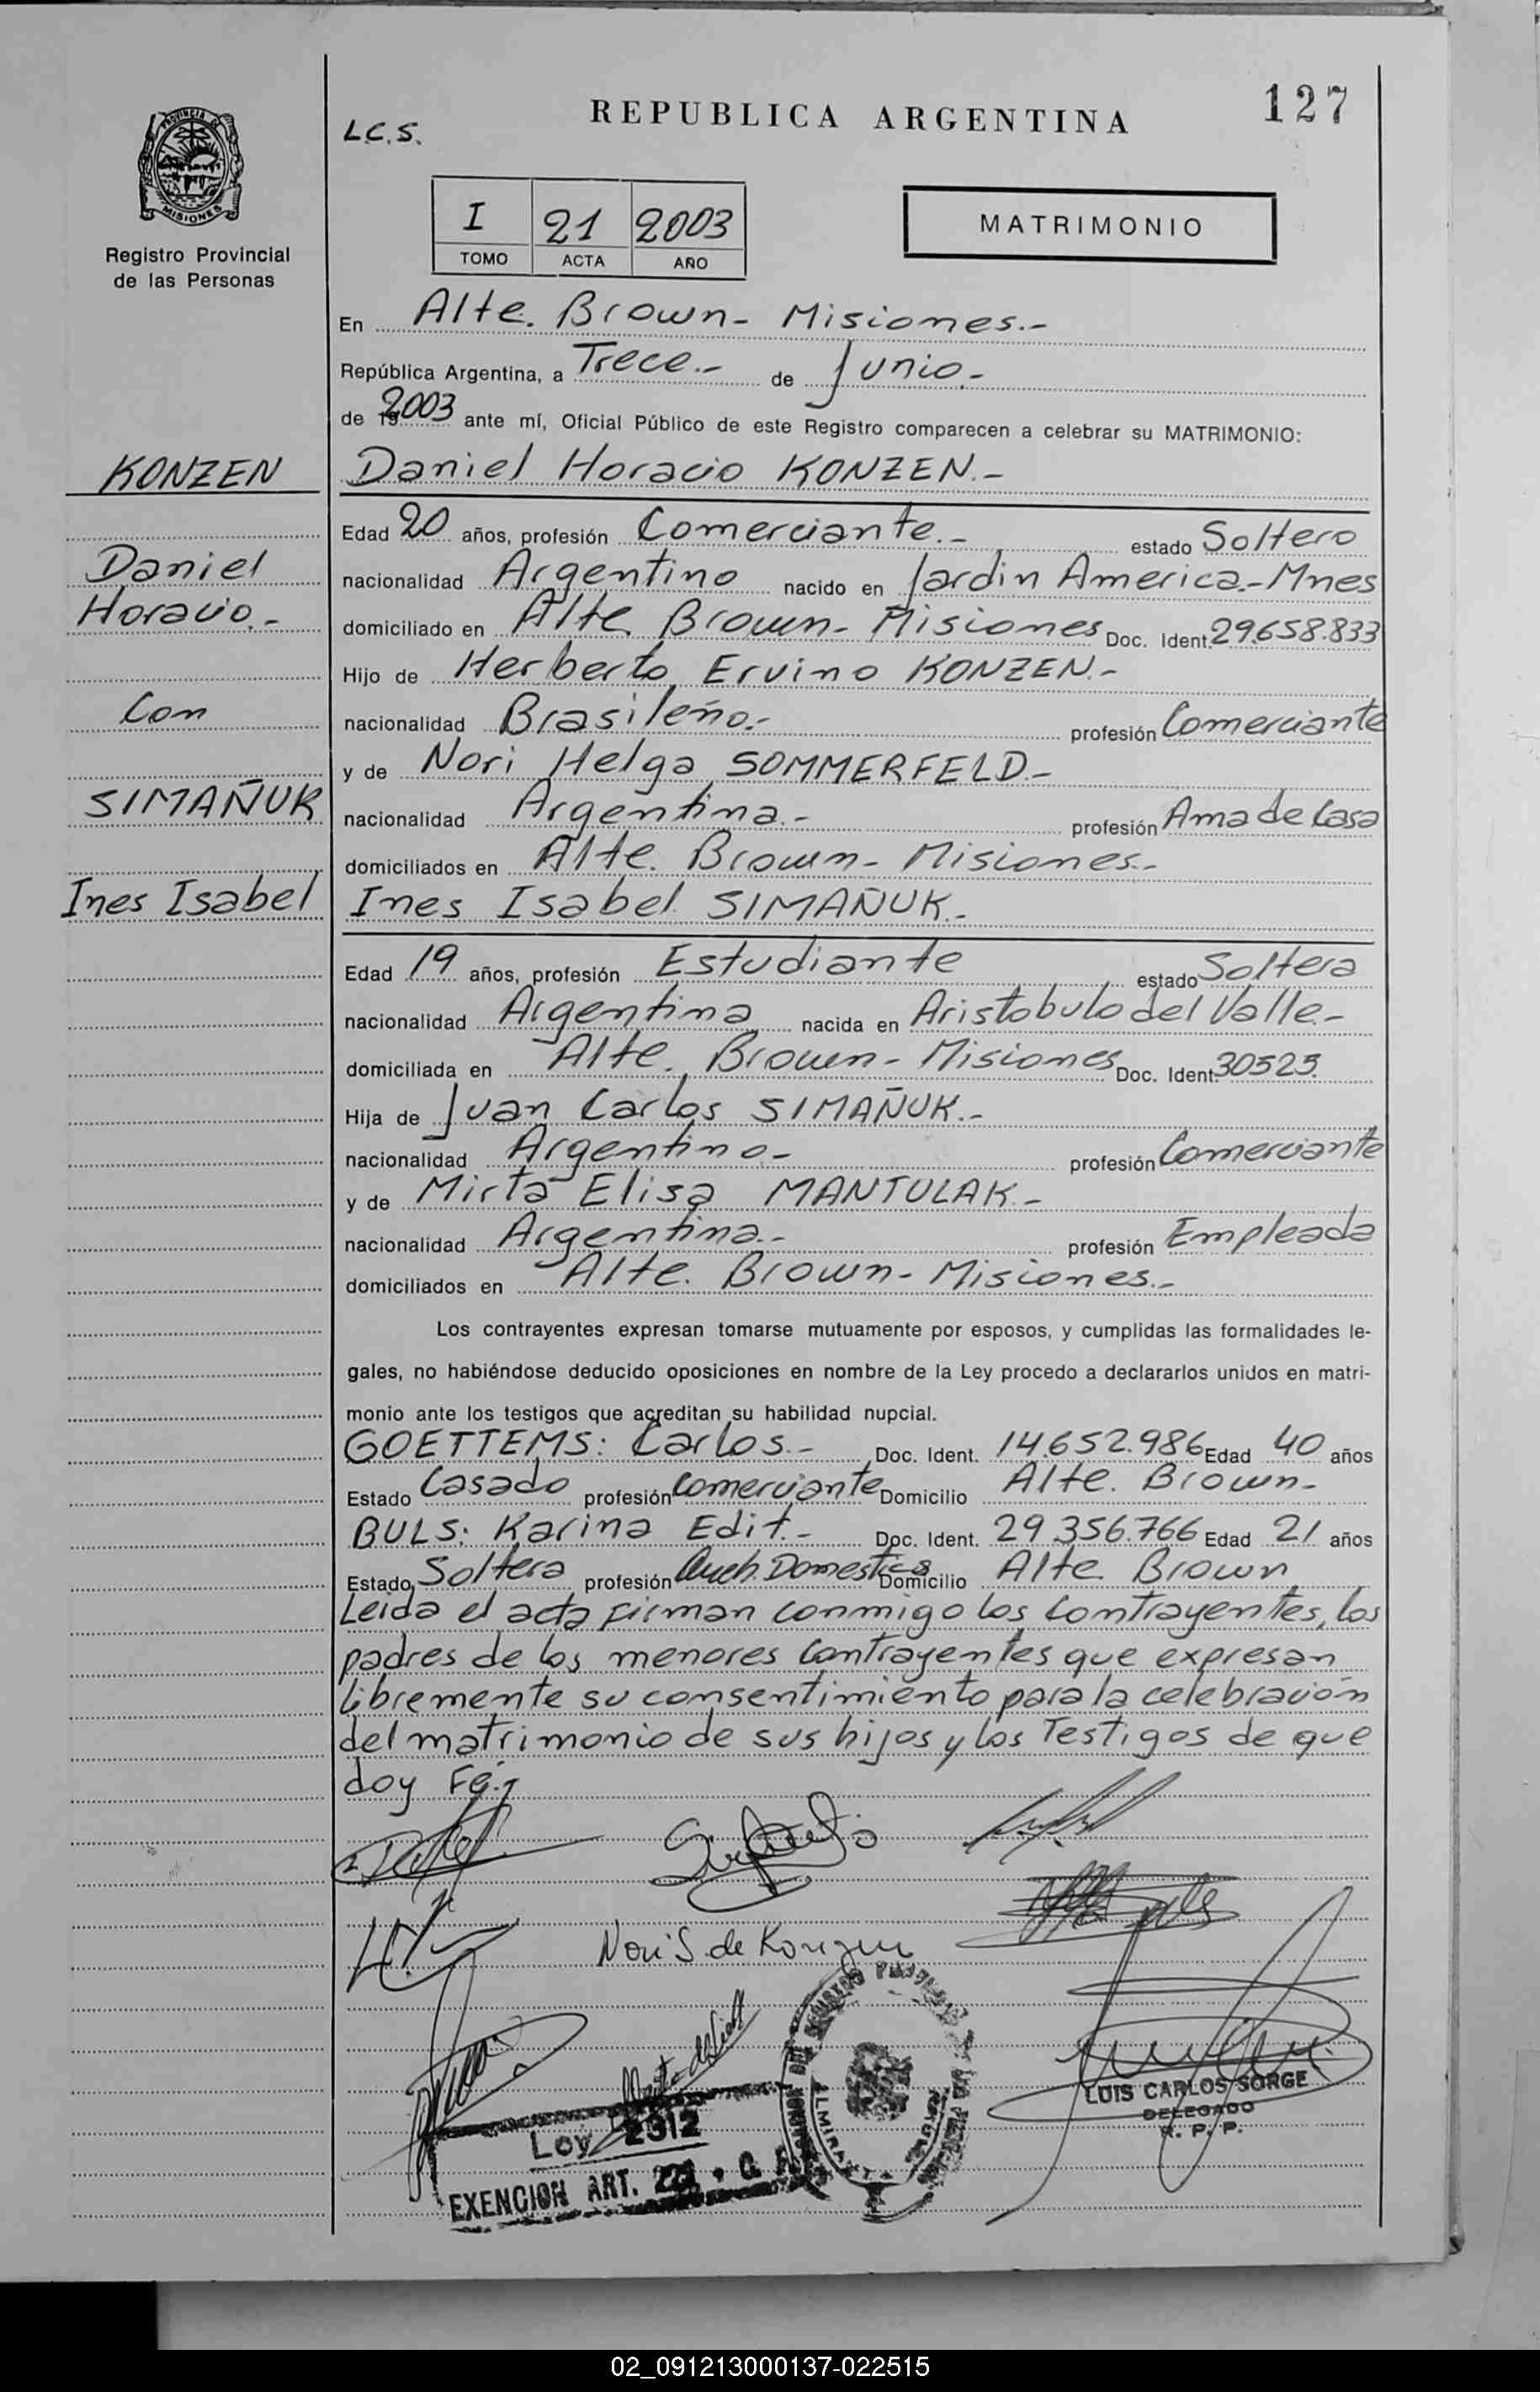 REPUBLICA ARGENTINA
127
L.C.S.
PROVINCIA DE
MISIONES
Registro Provincial
de las Personas
I 21 2003
TOMO ACTA AÑO
MATRIMONIO
En Alte. Brown- Misiones.-
República Argentina, a Trece.- de Junio.-
de 2003 ante mí, Oficial Público de este Registro comparecen a celebrar su MATRIMONIO:
KONZEN
Daniel
Horacio.-
Con
SIMAÑUK
Ines Isabel
Daniel Horacio KONZEN.-
Edad 20 años, profesión Comerciante.- estado Soltero
nacionalidad Argentino nacido en Jardin America.-Mnes
domiciliado en Alte. Brown- Misiones Doc. Ident. 29.658.833
Hijo de Herberto Ervino KONZEN.-
nacionalidad Brasileño.- profesión Comerciante
y de Nori Helga SOMMERFELD.-
nacionalidad Argentina.- profesión Ama de Casa
domiciliados en Alte. Brown- Misiones.-
Ines Isabel SIMAÑUK.-
Edad 19 años, profesión Estudiante estado Soltera
nacionalidad Argentina nacida en Aristobulo del Valle.-
domiciliada en Alte. Brown- Misiones Doc. Ident. 30523.
Hija de Juan Carlos SIMAÑUK.-
nacionalidad Argentino.- profesión Comerciante
y de Mirta Elisa MANTULAK.-
nacionalidad Argentina.- profesión Empleada
domiciliados en Alte. Brown- Misiones.-
Los contrayentes expresan tomarse mutuamente por esposos, y cumplidas las formalidades le-
gales, no habiéndose deducido oposiciones en nombre de la Ley procedo a declararlos unidos en matri-
monio ante los testigos que acreditan su habilidad nupcial.
GOETTEMS: Carlos.- Doc. Ident. 14.652.986 Edad 40 años
Estado Casado profesión Comerciante Domicilio Alte. Brown-
BULS: Karina Edit.- Doc. Ident. 29.356.766 Edad 21 años
Estado Soltera profesión Queh. Domestica Domicilio Alte. Brown
Leida el acta firman conmigo los Contrayentes, los
padres de los menores Contrayentes que expresan
libremente su consentimiento para la celebración
del matrimonio de sus hijos y los Testigos de que
doy Fé.-
Nori S. de Konzen
LUIS CARLOS SORGE
DELEGADO
R. P. P.
Ley 2312
EXENCION ART. 221
02_091213000137-022515